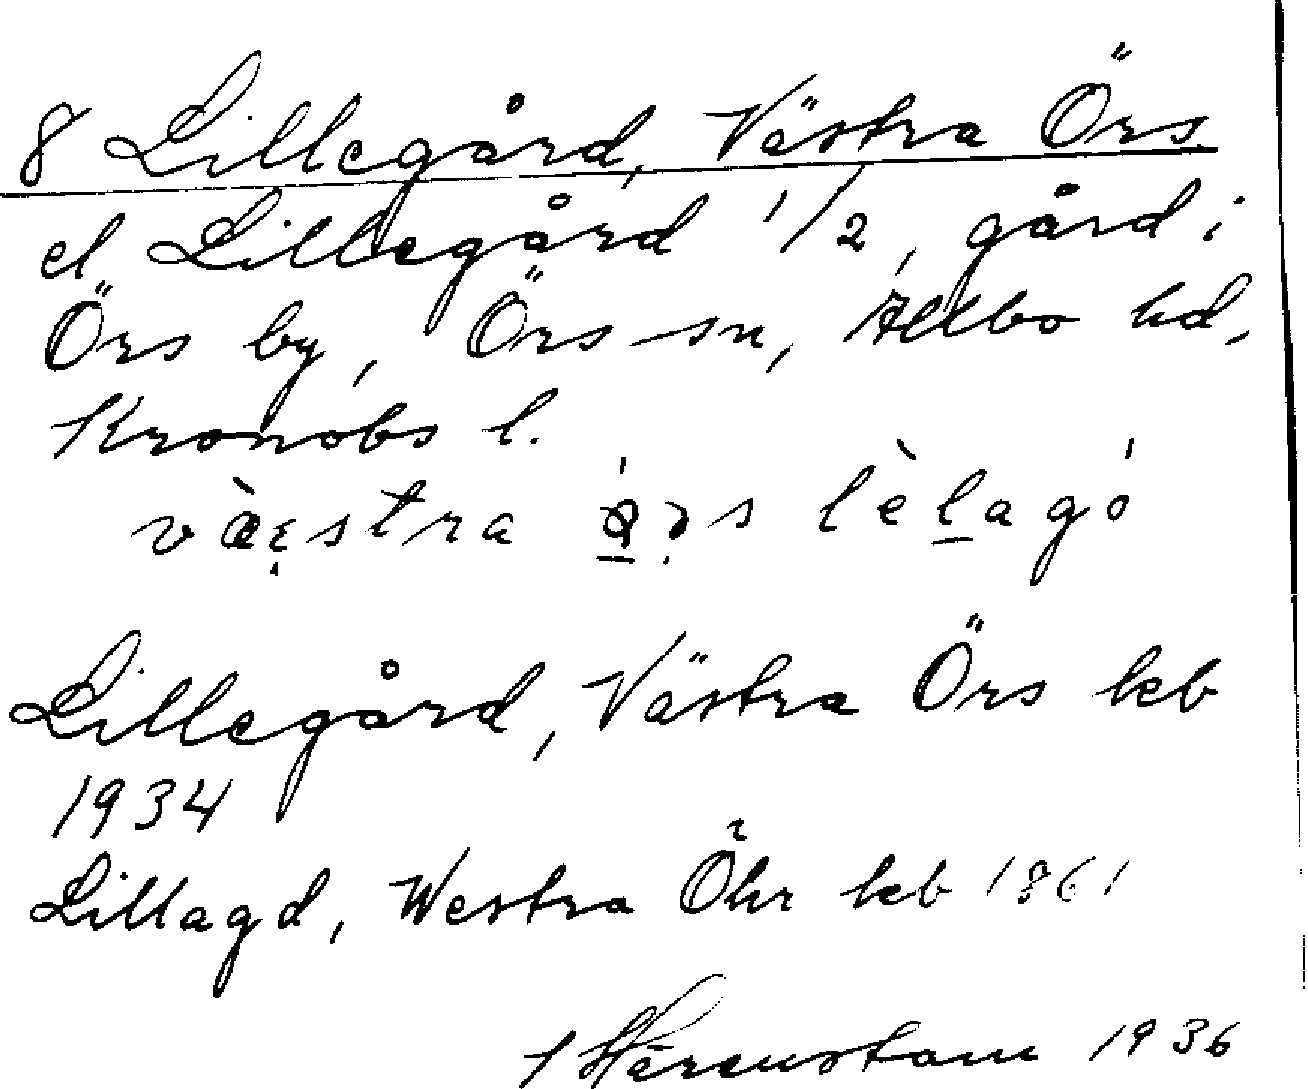 8 Lillegård, Västra Örs.
el Lillegård 1/2, gård i
Örs by, Örs sn, Allbo hd,
Kronobs l.
væ̀ɛstra ǫ́ɂs lèḻagó
Lillegård, Västra Örs kb
1934
Lillagd, Westra Öhr kb 1861
1936